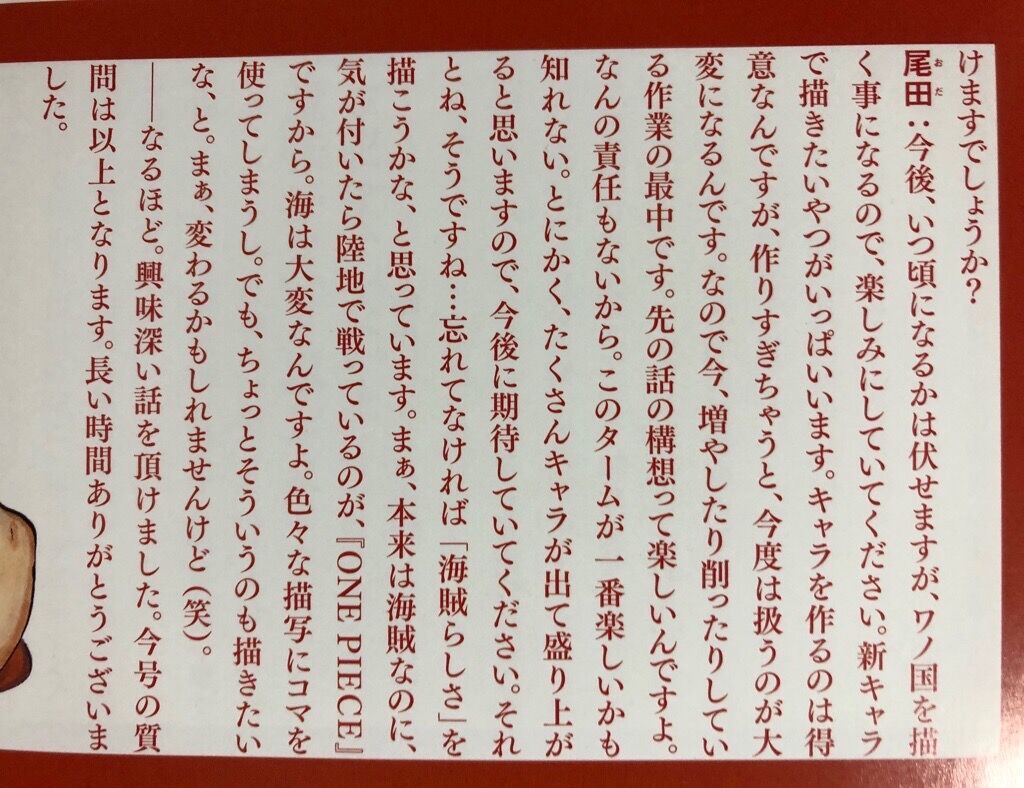 けますでしょうか?
尾田:今後、いつ頃になるかは伏せますが、ワノ国を描
く事になるので、楽しみにしていてください。新キャラ
で描きたいやつがいっぱいいます。キャラを作るのは得
意なんですが、作りすぎちゃうと、今度は扱うのが大
変になるんです。なので今、増やしたり削ったりしてい
る作業の最中です。先の話の構想って楽しいんですよ。
なんの責任もないから。このタームが一番楽しいかも
知れない。とにかく、たくさんキャラが出て盛り上が
ると思いますので、今後に期待していてください。それ
とね、そうですね…忘れてなければ「海賊らしさ」を
描こうかな、と思っています。まぁ、本来は海賊なのに、
気が付いたら陸地で戦っているのが、『ONE PIECE』
ですから。海は大変なんですよ。色々な描写にコマを
使ってしまうし。でも、ちょっとそういうのも描きたい
な、と。まぁ、変わるかもしれませんけど(笑)。
――なるほど。興味深い話を頂けました。今号の質
問は以上となります。長い時間ありがとうございま
した。